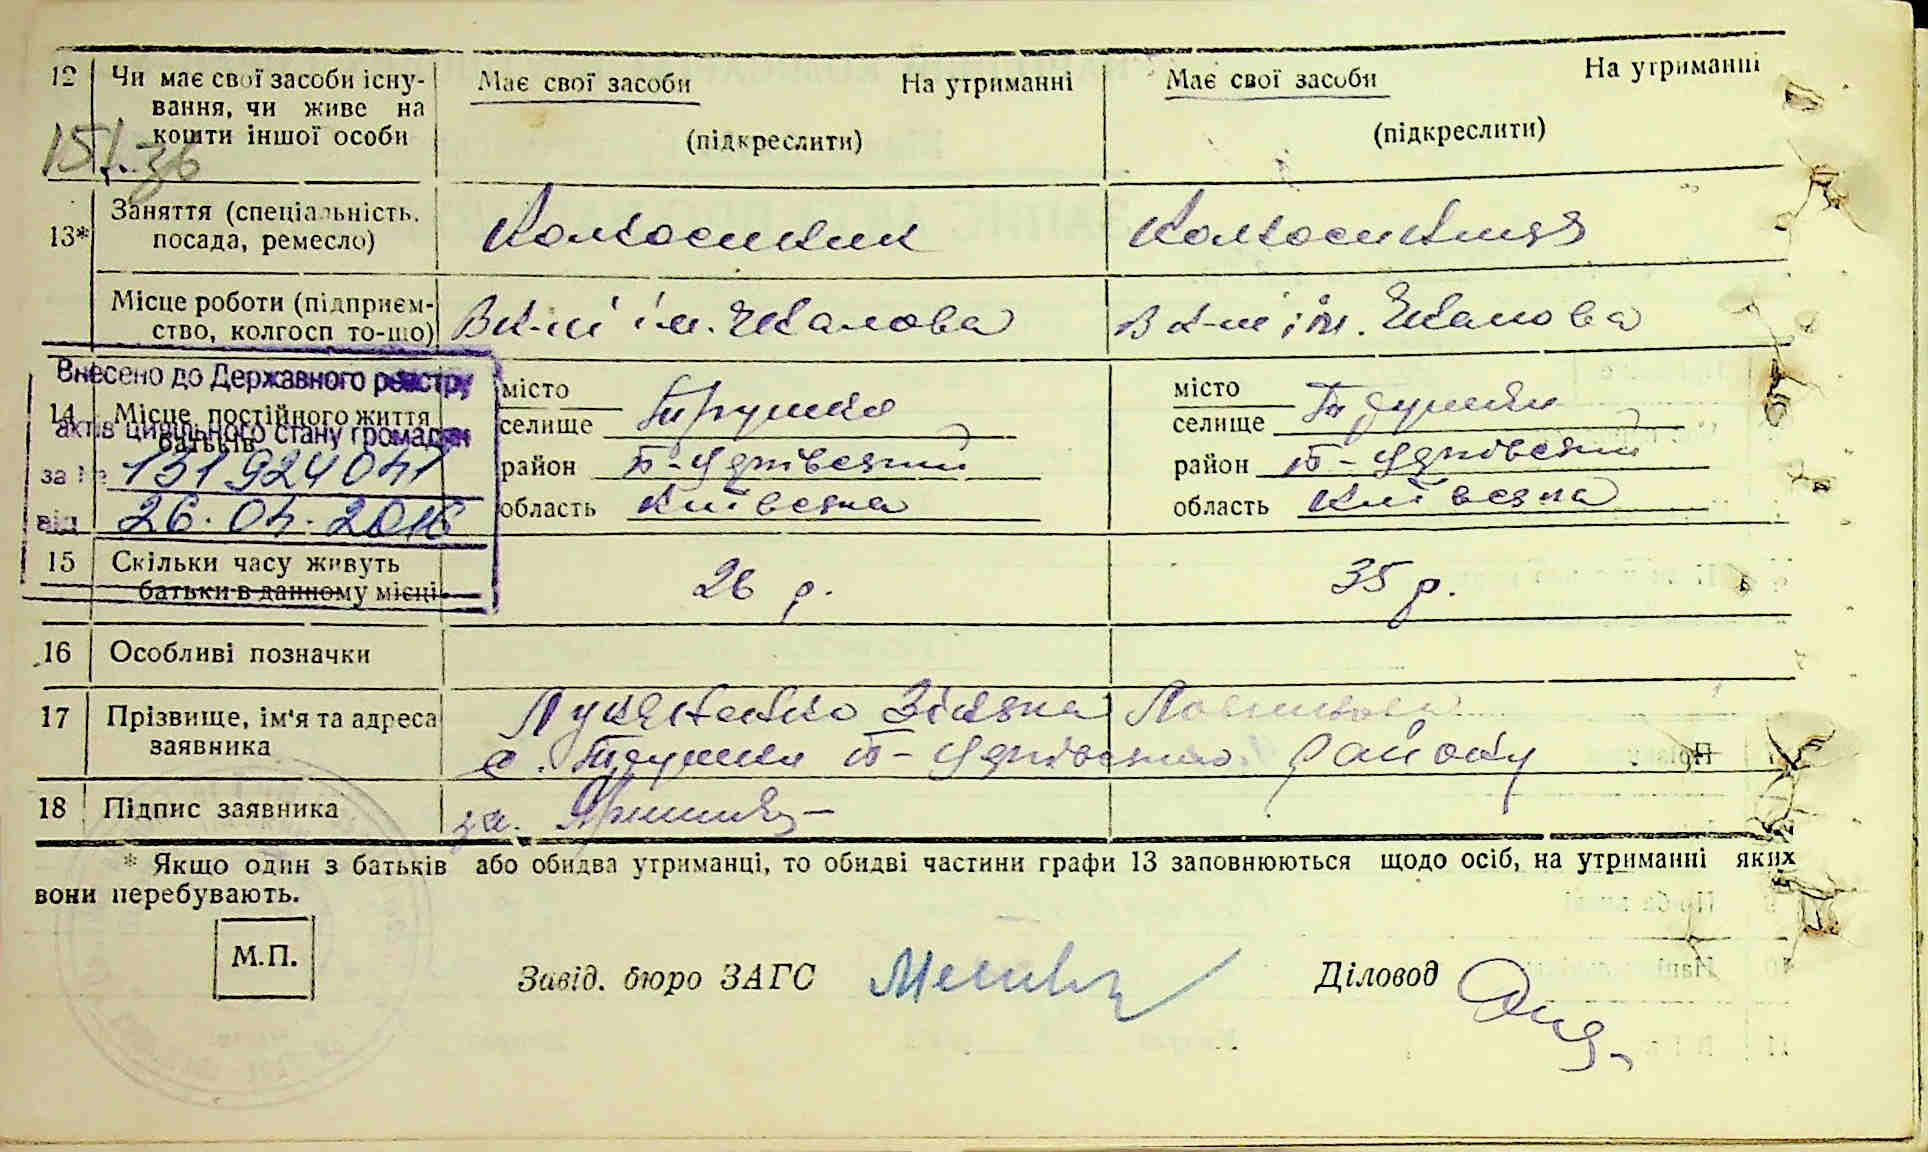 12 Чи має свої засоби існу- Має свої засоби На утриманні Має свої засоби На утриманні
вання, чи живе на
кошти іншої особи (підкреслити) (підкреслити)
13* Заняття (спеціальність, Колхосник Колхосниця
посада, ремесло)
Місце роботи (підприєм- В к-пі ім. Чкалова В к-пі ім. Чкалова
ство, колгосп то-що)
Внесено до Державного реєстру
актів цивільного стану громадян
за № 131924041
від 26.04.2016
14 Місце постійного життя місто місто
батьків селище Трушки селище Трушки
район Б-Церківський район Б-Церківський
область Київська область Київська
15 Скільки часу живуть 26 р. 35 р.
батьки в данному місці
16 Особливі позначки
17 Прізвище, ім'я та адреса Лук'яненко
заявника с. Трушки Б-Церківського району
18 Підпис заявника
* Якщо один з батьків або обидва утриманці, то обидві частини графи 13 заповнюються щодо осіб, на утриманні яких
вони перебувають.
М.П.
Завід. бюро ЗАГС Діловод